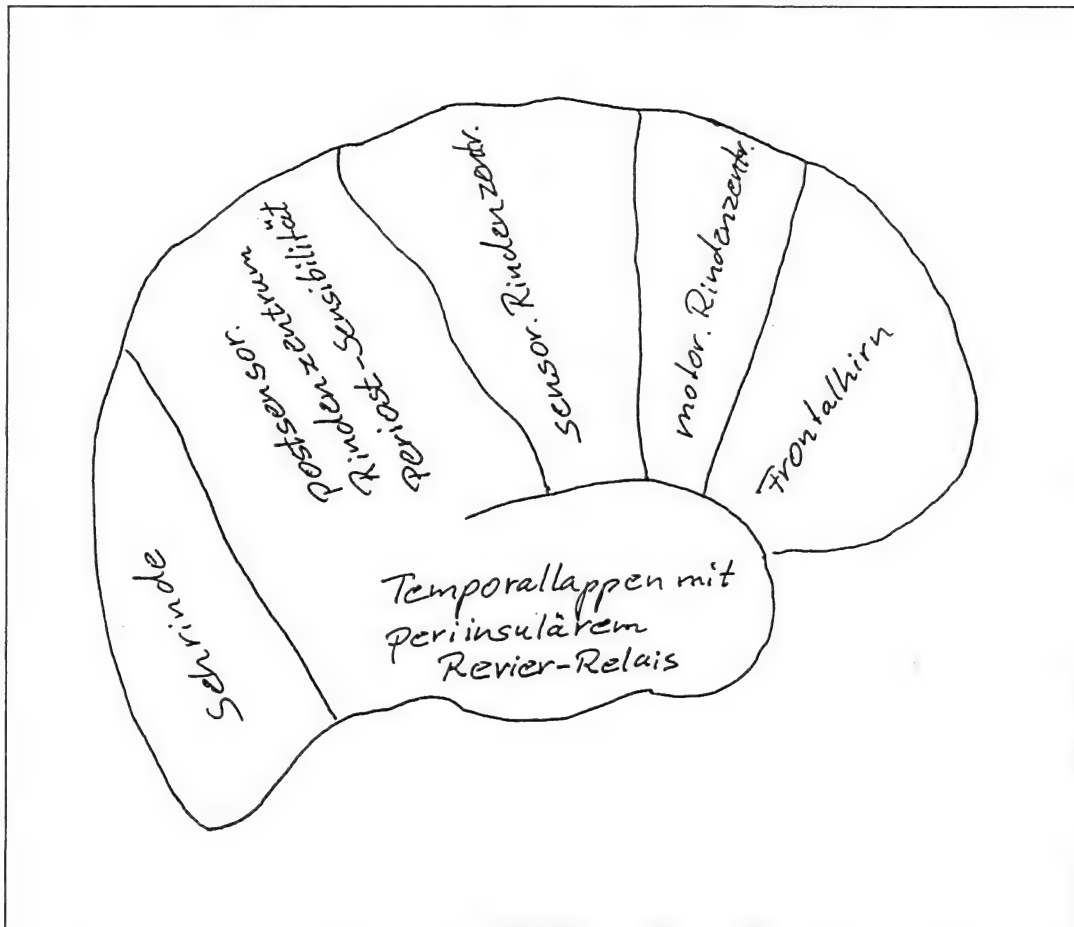 Sehrinde
postsensor.
Rindenzentrum
für
Periost-Sensibilität
sensor. Rindenzentr.
motor. Rindenzentr.
Frontalhirn
Temporallappen mit
periinsulärem
Revier-Relais